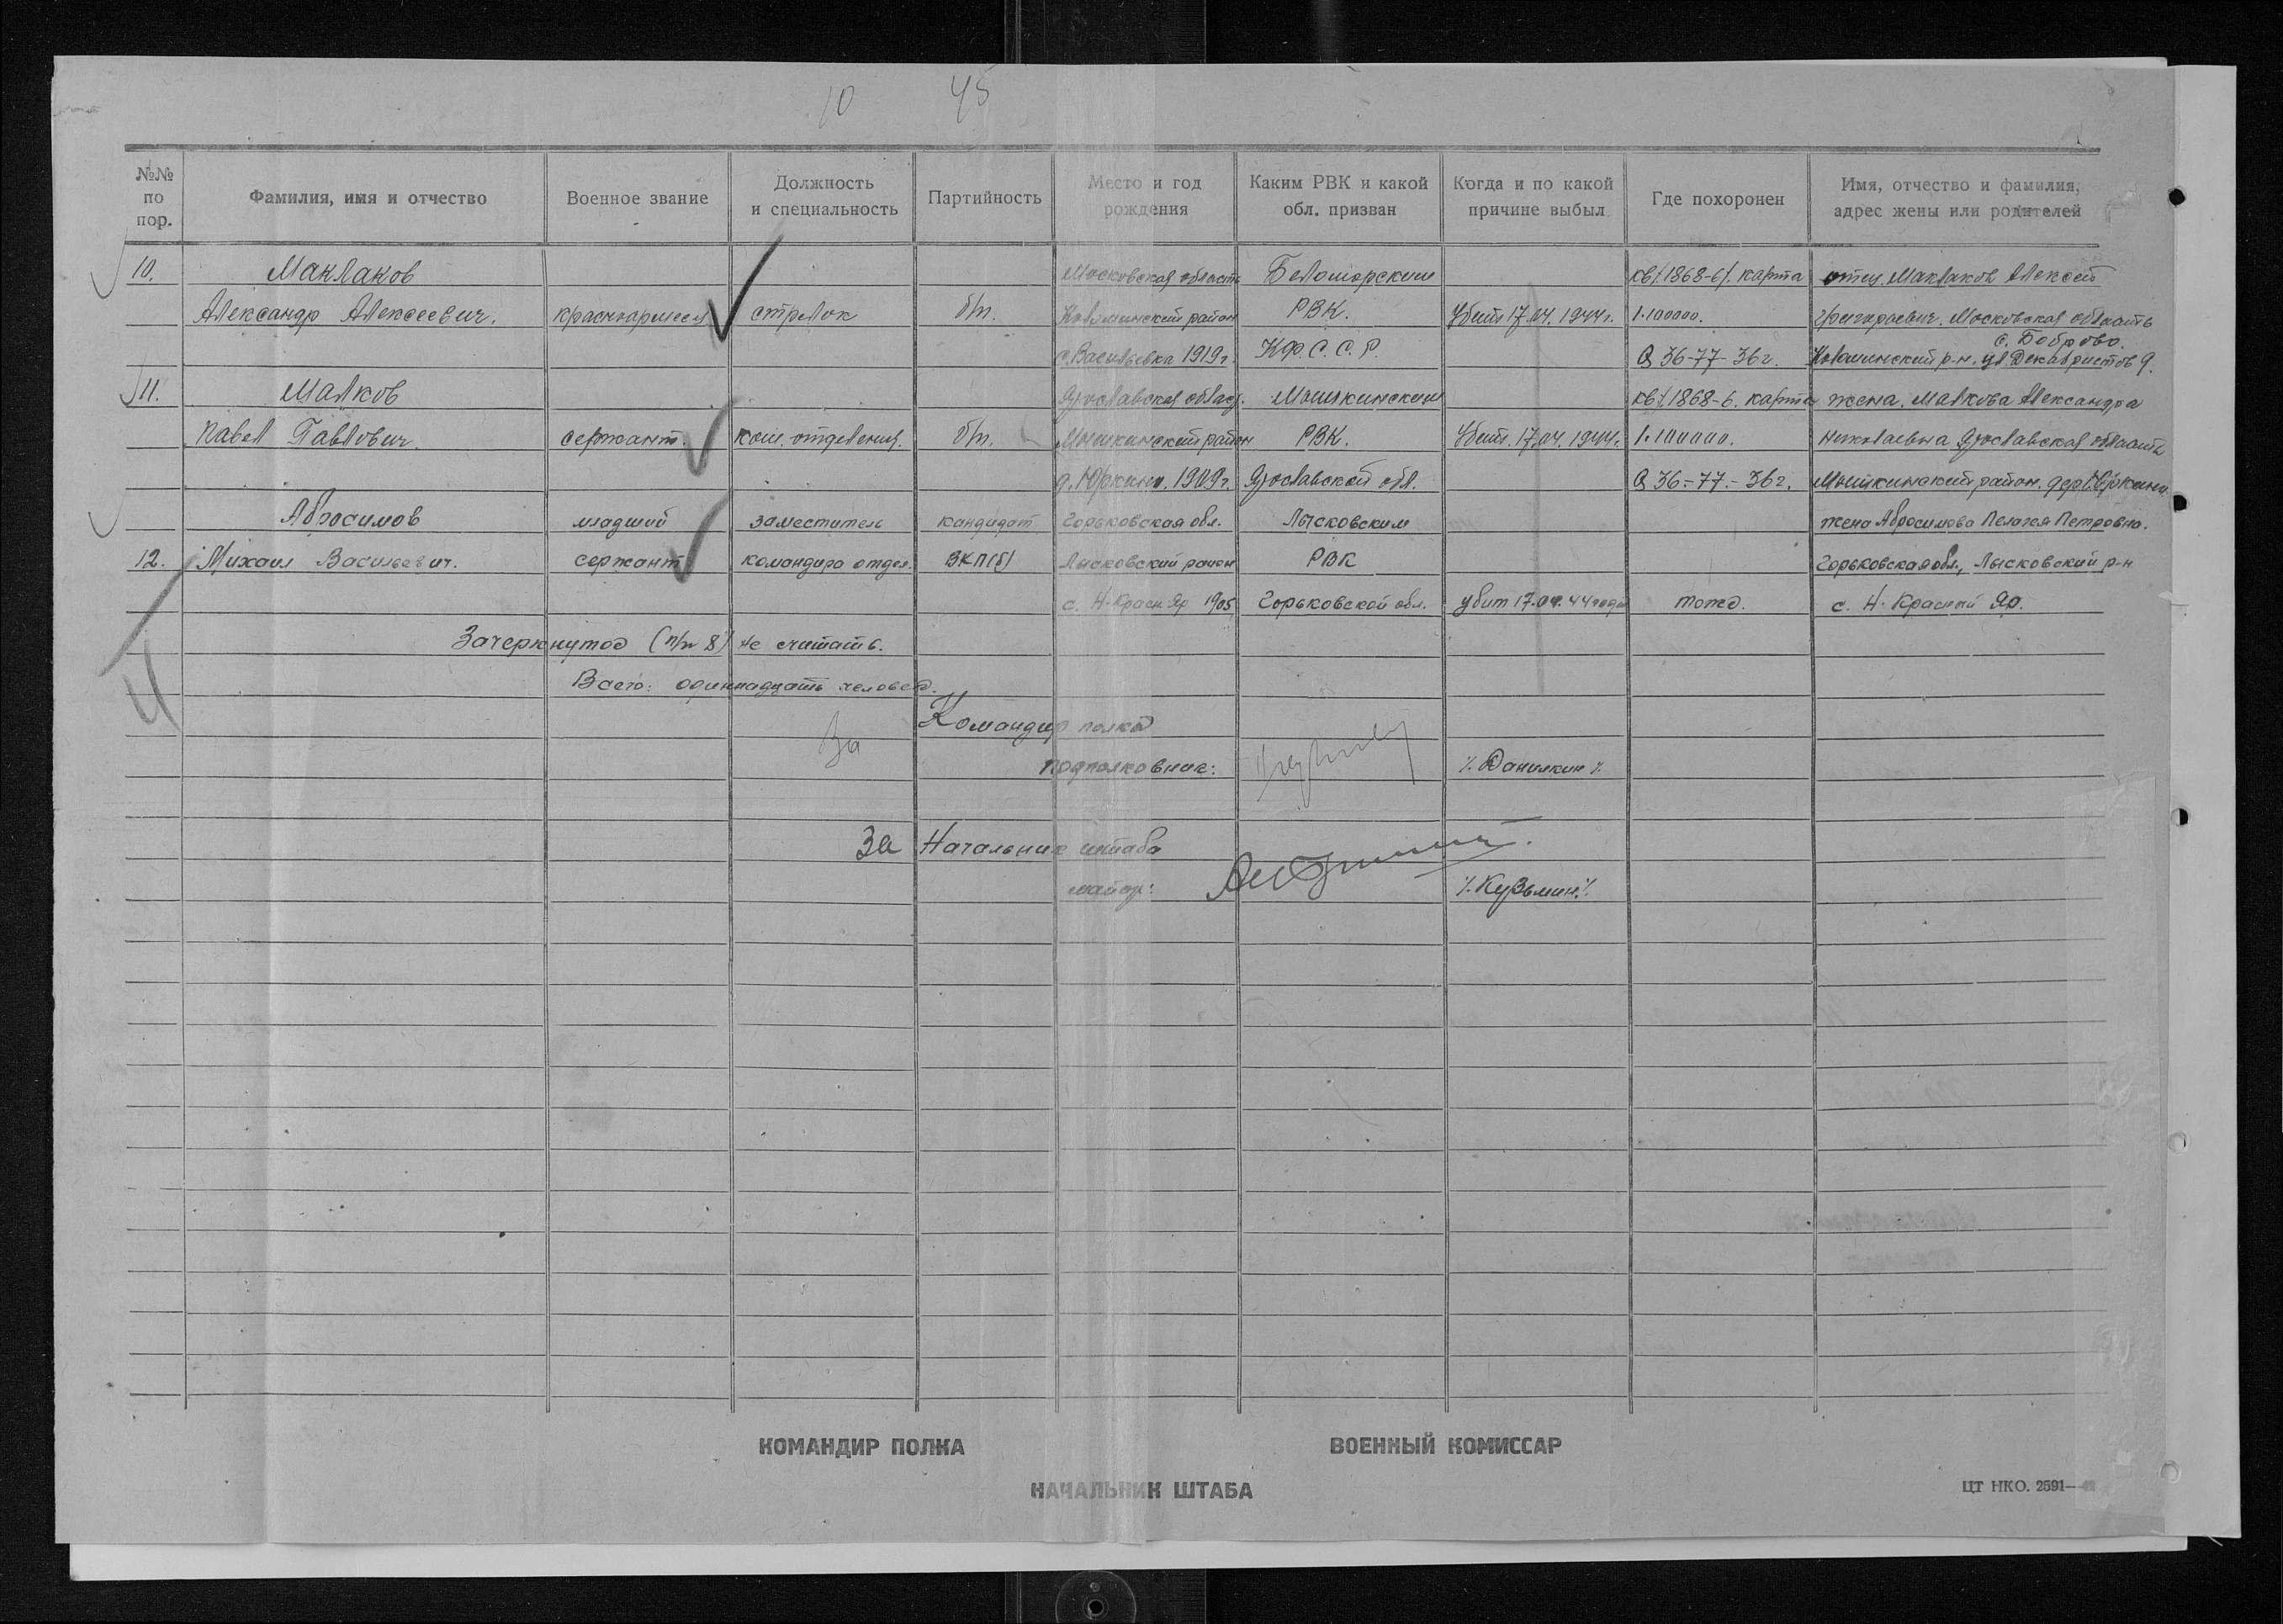 10 45
№№ по пор.
Фамилия, имя и отчество
Военное звание
Должность и специальность
Партийность
Место и год рождения
Каким РВК и какой обл. призван
Когда и по какой причине выбыл
Где похоронен
Имя, отчество и фамилия, адрес жены или родителей
10. Маклаков Московская область Беломорским кв/.1868-6/. карта отец. Маклаков Алексей
Александр Алексеевич. красноармеец стрелок б/п. район РВК. Убит 17.04.1944г. 1.100000. Григорьевич. Московская область
с. Боброво.
с. Васильевка 1919г. КФ.С.С.Р. Q 36-77-36г. р-н. ул. Декабристов 9.
11. Малков Ярославская област. Мышкинским кв/.1868-6. карта жена. Малкова Александра
Павел Павлович. сержант. ком. отделения. б/п. Мышкинский район РВК. Убит. 17.04.1944г. 1.100000. Николаевна Ярославская область
д. Юркино. 1909г. Ярославской обл. Q 36-77-36г. Мышкинский район. дер. Юркино.
Абросимов младший заместитель кандидат Горьковская обл. Лысковским жена Абросимова Пелагея Петровна.
12. Михаил Васильевич. сержант командира отдел. ВКП(б) Лысковский район РВК Горьковская обл., Лысковский р-н
с. Н-Красн. Яр 1905 Горьковской обл. убит 17.04.44 года тоже. с. Н. Красный Яр.
Зачеркнутое (п/п 8) не считать.
Всего: одиннадцать человек.
За Командир полка
подполковник: /.Данилкин/.
За Начальник штаба
майор: /.Кузьмин./.
4
КОМАНДИР ПОЛКА ВОЕННЫЙ КОМИССАР
НАЧАЛЬНИК ШТАБА
ЦТ НКО. 2591—42